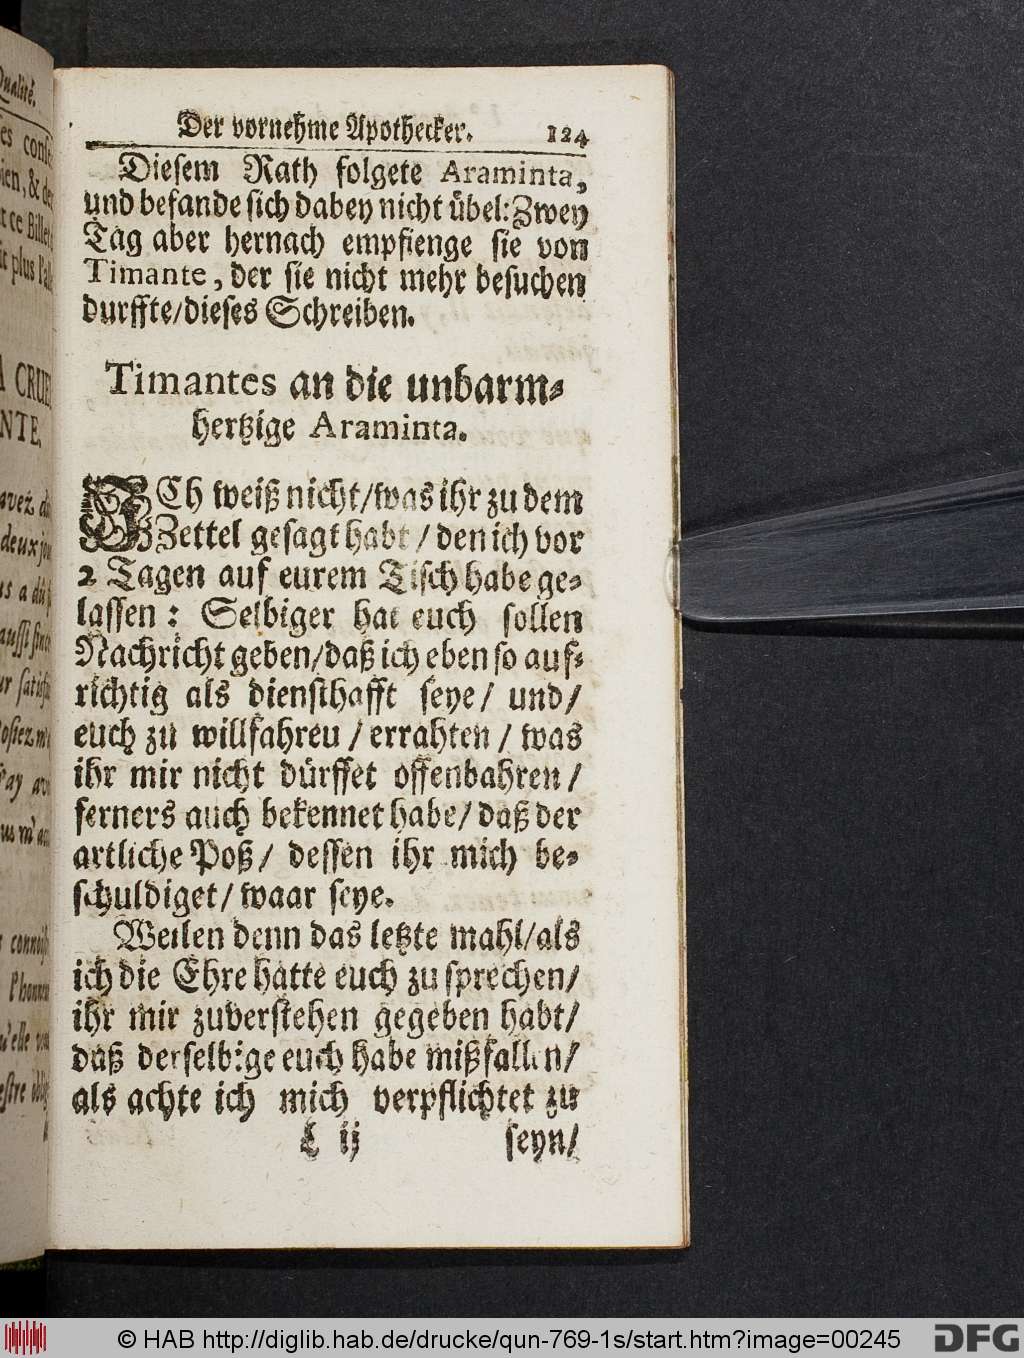 Der vornehme Apothecker. 124
Diesem Rath folgete Araminta,
und befande sich dabey nicht übel: Zwey
Tag aber hernach empfienge sie von
Timante, der sie nicht mehr besuchen
durffte/dieses Schreiben.
Timantes an die unbarm-
hertzige Araminta.
ICh weiß nicht/was ihr zu dem
Zettel gesagt habt / den ich vor
2 Tagen auf eurem Tisch habe ge-
lassen: Selbiger hat euch sollen
Nachricht geben/daß ich eben so auf-
richtig als diensthafft seye/ und/
euch zu willfahreu / errahten / was
ihr mir nicht dürffet offenbahren /
ferners auch bekennet habe/ daß der
artliche Poß/ dessen ihr mich be-
schuldiget/ waar seye.
Weilen denn das letzte mahl/als
ich die Ehre hatte euch zu sprechen/
ihr mir zuverstehen gegeben habt/
daß derselbige euch habe mißfallen/
als achte ich mich verpflichtet zu
L ij seyn/
Qualité.
CRUEL
NTE.
© HAB http://diglib.hab.de/drucke/qun-769-1s/start.htm?image=00245
DFG